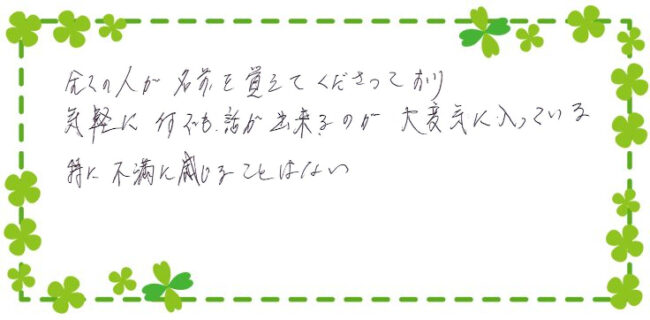 全ての人が名前を覚えてくださっており
気軽に何でも話が出来るのが大変気に入っている
特に不満に感じることはない